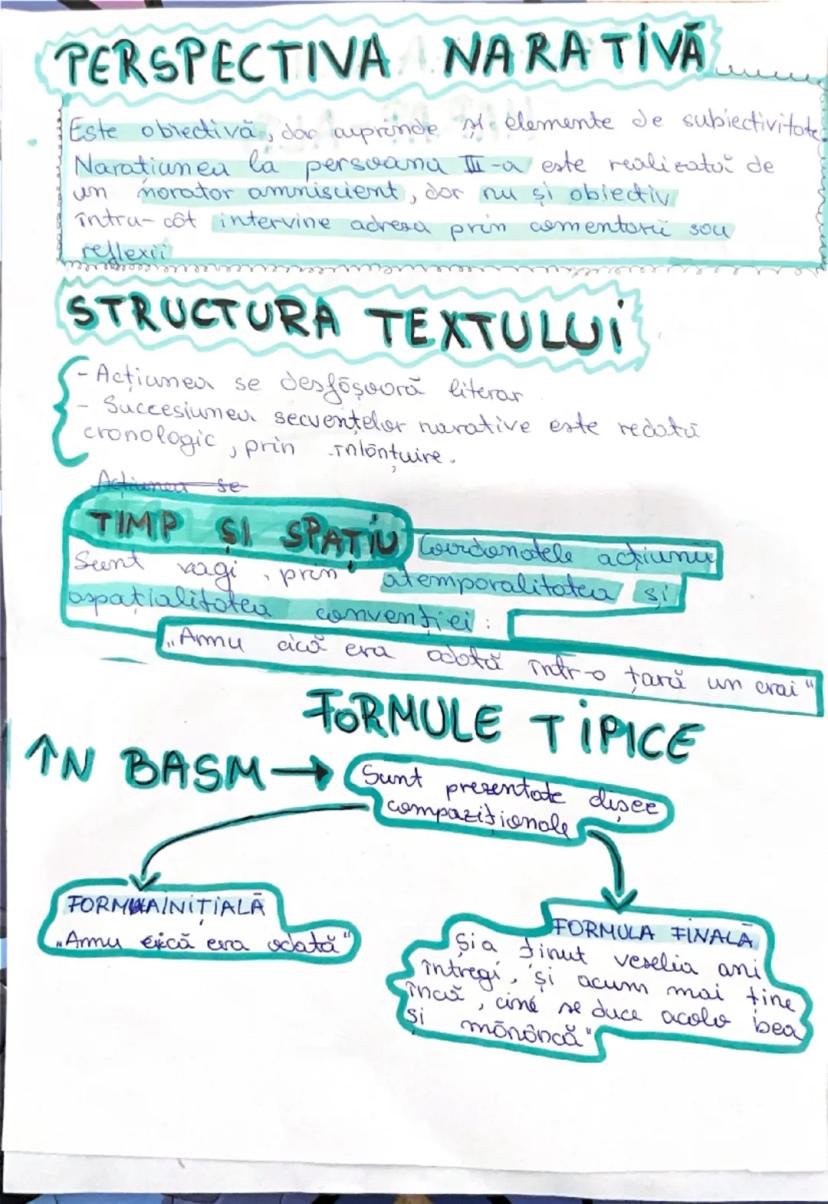 PERSPECTIVA NARATIVĂ
Este obiectivă, dar cuprinde și elemente de subiectivitate
Narațiunea la persoana III-a este realizată de
un norator amniscient, dar nu și obiectiv
întru-cât intervine adesea prin comentarii sau
reflexii
STRUCTURA TEXTULUI
- Acțiunea se desfășoară literar
- Succesiunea secvențelor narative este redată
cronologic, prin înlănțuire.
Acțiunea se
TIMP ȘI SPAȚIU Coordonatele acțiunii
Sunt vagi, prin atemporalitatea și
aspațialitatea convenției:
„Amu cică era odată într-o țară un crai"
FORMULE TIPICE
ÎN BASM → Sunt prezentate
compoziționale
FORMULA INIȚIALĂ
„Amu cică era odată"
FORMULA FINALĂ
Și a ținut veselia ani
întregi, și acum mai ține
încă, cine se duce acolo bea
și mănâncă"